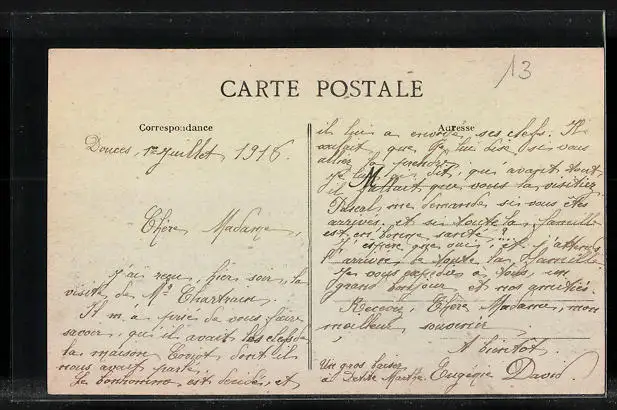 13
CARTE POSTALE
Correspondance
Douces, 1er Juillet 1916.
Chère Madame,
J'ai reçu, hier soir, la
visite de Mr Chartrain.
Il m'a prié de vous faire
savoir, qu'il avait les clefs de
la maison dont il
nous avait parlé.
Le bonhomme est décidé, et
Adresse
il lui a envoyé ses clefs. Il
voulait que je lui dise si vous
alliez la prendre.
Je lui ai dit, qu'avant tout
il fallait que vous la visitiez.
Pascal, me demande si vous êtes
arrivés et si toute la famille
est en bonne santé?
J'espère que oui, et j'attends
l'arrivée de toute la famille.
Je vous à tous, un
grand bonjour et nos amitiés.
Recevez, Chère Madame, mon
meilleur souvenir
A bientôt.
Un gros baiser
à Petite Marthe. Eugénie David.